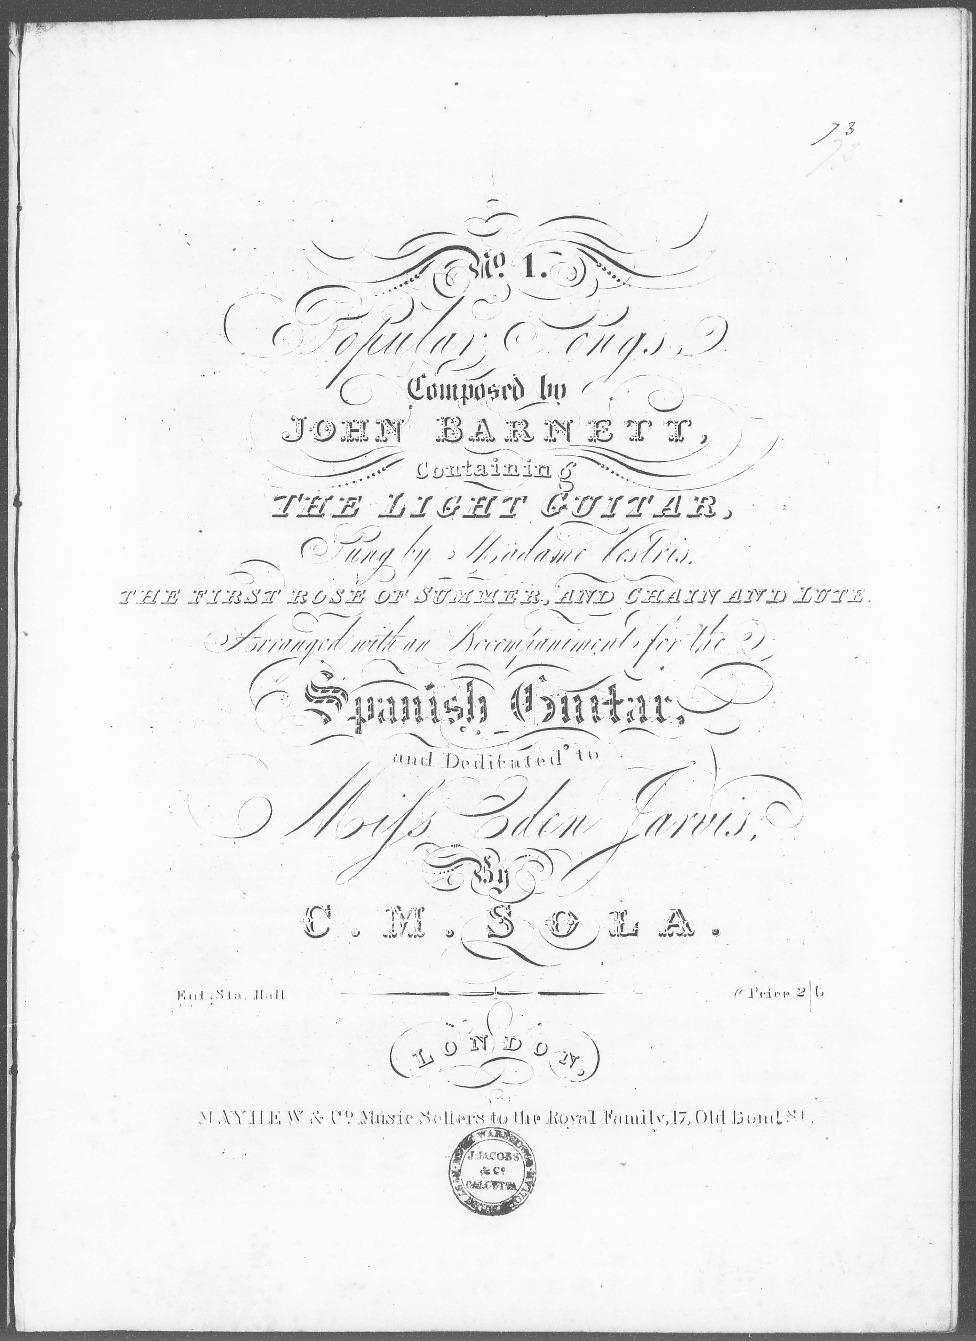 73
No. 1.
Popular Songs
Composed by
JOHN BARNETT,
Containing
THE LIGHT GUITAR,
Sung by Madame Vestris,
THE FIRST ROSE OF SUMMER, AND CHAIN AND LUTE.
Arranged with an Accompaniment for the
Spanish Guitar,
and Dedicated to
Miſs Eden Jarvis,
By
C. M. SOLA.
Ent. Sta. Hall
Price 2/6
LONDON,
MAYHEW & Co. Music Sellers to the Royal Family, 17, Old Bond St.
J. JACOBS
& Co
CALCUTTA